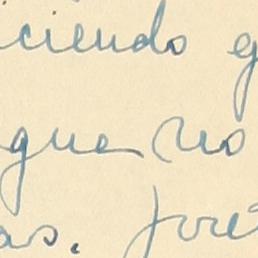 iciendo q
que no
as. fre